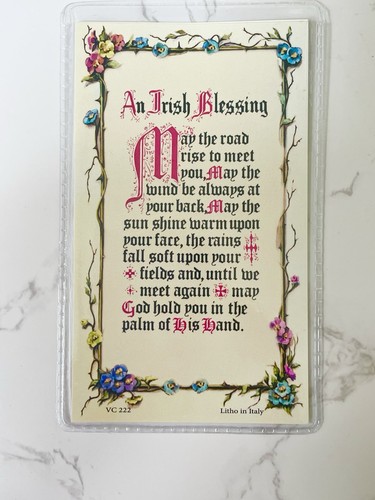 An Irish Blessing
May the road
rise to meet
you, May the
wind be always at
your back, May the
sun shine warm upon
your face, the rains
fall soft upon your
fields and, until we
meet again may
God hold you in the
palm of His Hand.
VC 222 Litho in Italy